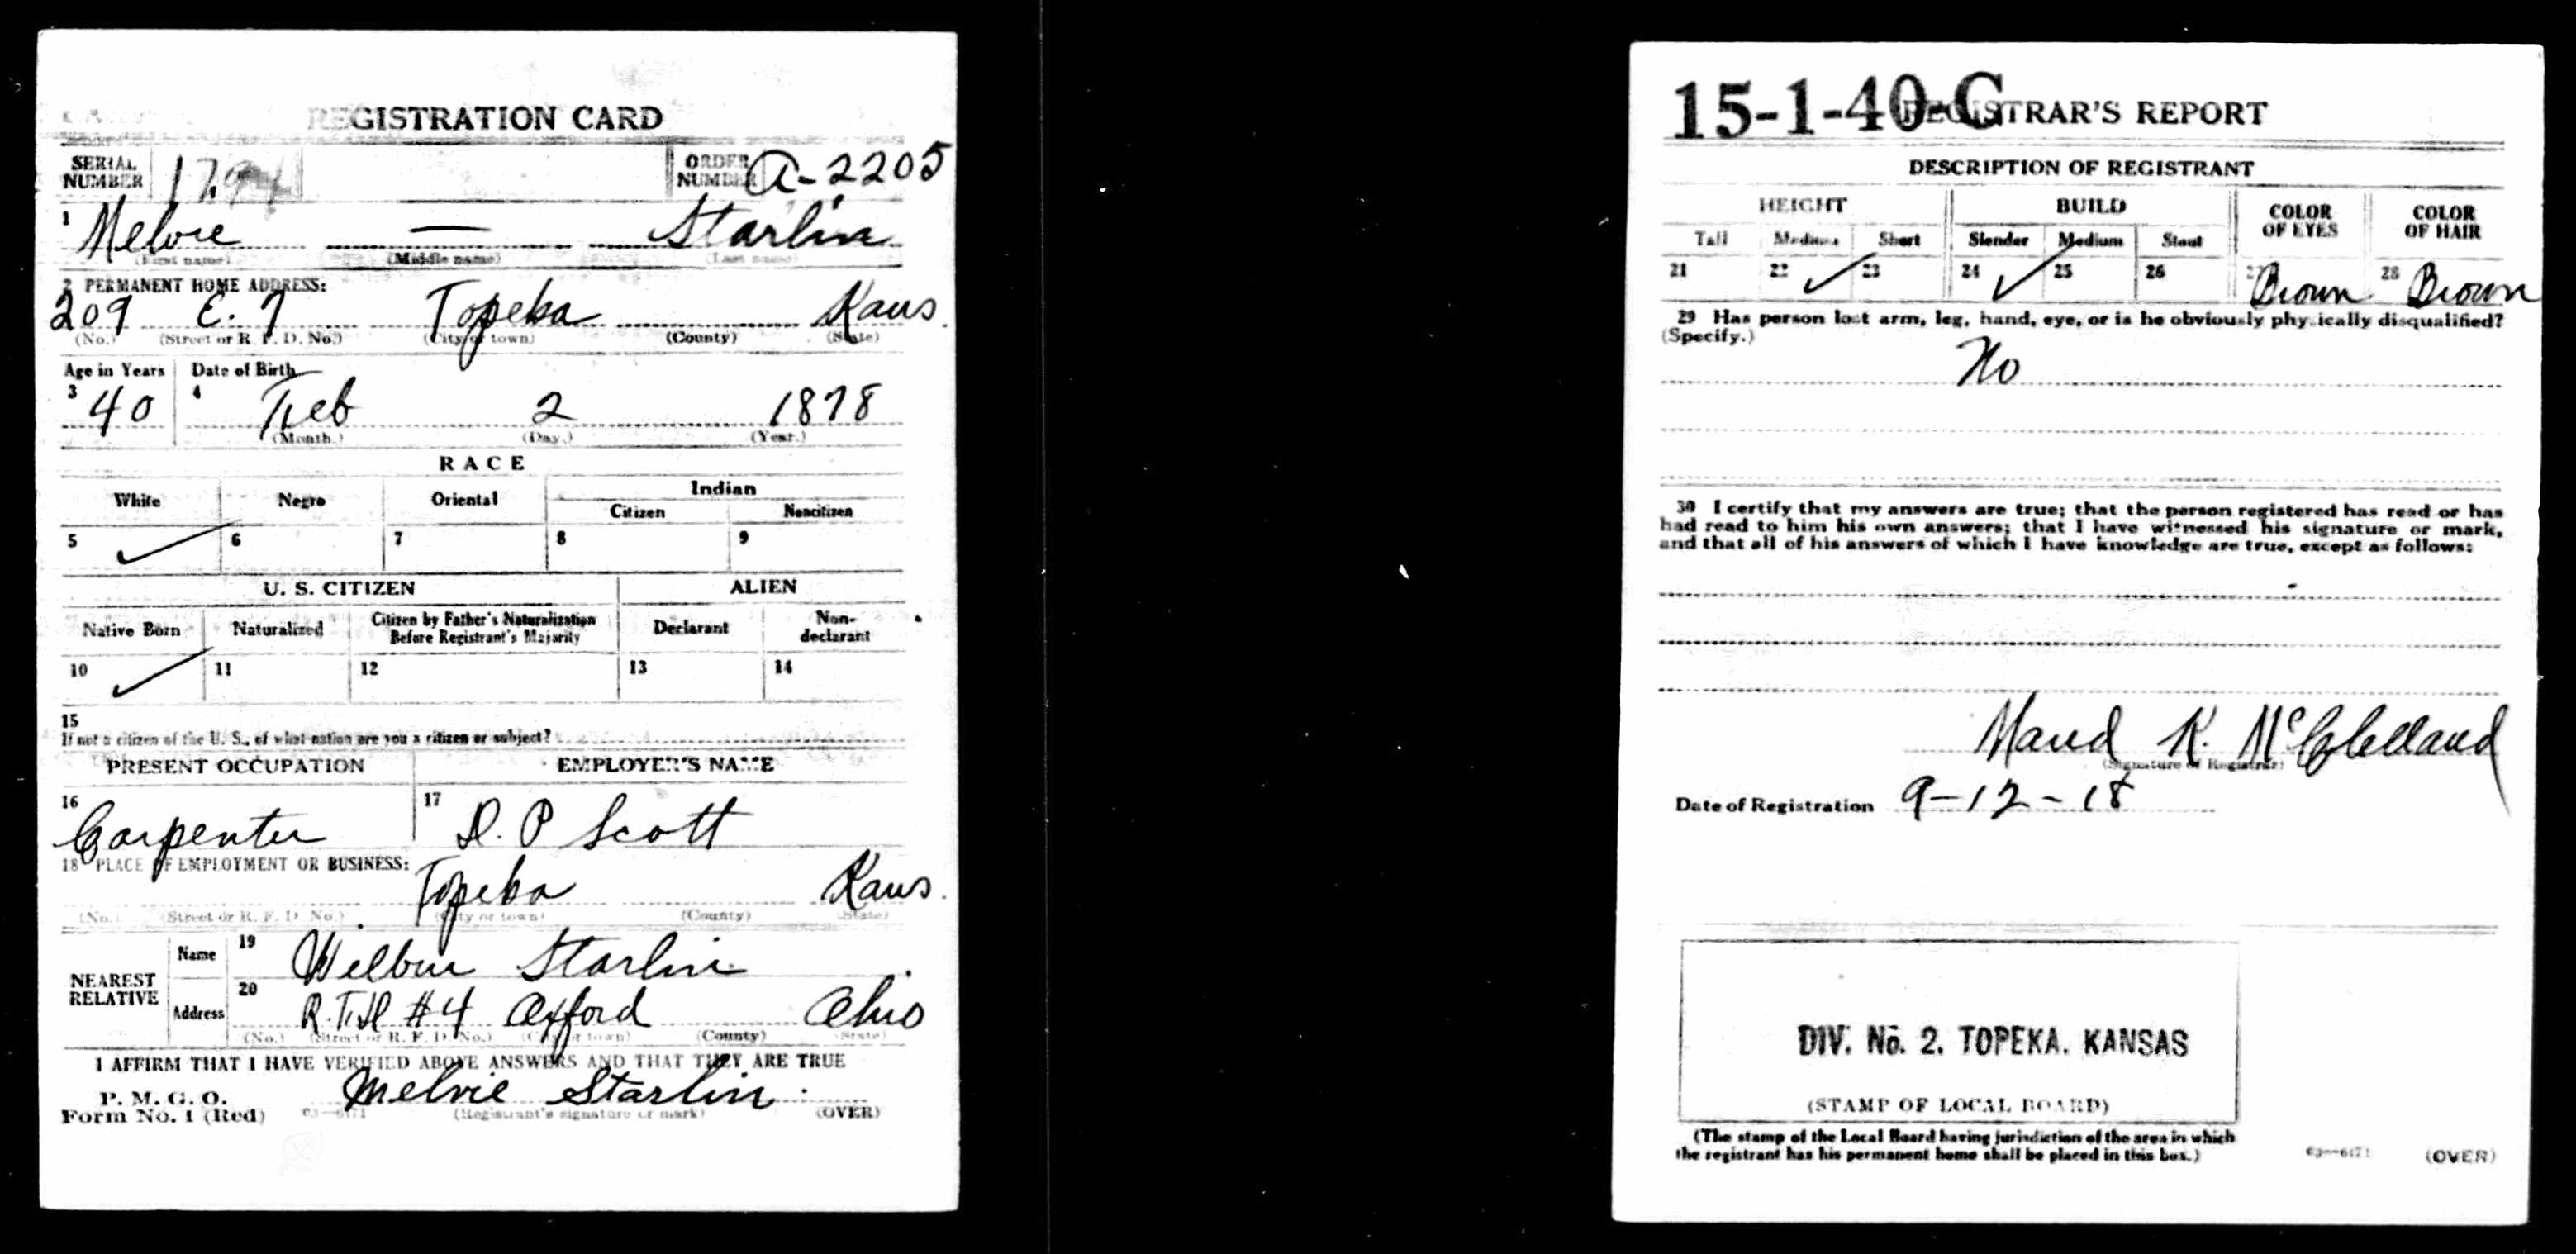 REGISTRATION CARD
SERIAL NUMBER 1794 ORDER NUMBER A-2205
1 Melvie — Starlin
(First name) (Middle name) (Last name)
2 PERMANENT HOME ADDRESS:
209 E. 7 Topeka Kans
(No.) (Street or R. F. D. No.) (City or town) (County) (State)
Age in Years Date of Birth
3 40 4 Feb 2 1878
(Month.) (Day.) (Year.)
RACE
White Negro Oriental Indian
Citizen Noncitizen
5 ✓ 6 7 8 9
U. S. CITIZEN ALIEN
Native Born Naturalized Citizen by Father's Naturalization Before Registrant's Majority Declarant Non-declarant
10 ✓ 11 12 13 14
15
If not a citizen of the U. S., of what nation are you a citizen or subject?
PRESENT OCCUPATION EMPLOYER'S NAME
16 Carpenter 17 D. P Scott
18 PLACE OF EMPLOYMENT OR BUSINESS:
Topeka Kans.
(No.) (Street or R. F. D. No.) (City or town) (County) (State)
NEAREST RELATIVE Name 19 Wilbur Starlin
Address 20 R.F.D #4 Oxford Ohio
(No.) (Street or R. F. D. No.) (City or town) (County) (State)
I AFFIRM THAT I HAVE VERIFIED ABOVE ANSWERS AND THAT THEY ARE TRUE
P. M. G. O.
Form No. 1 (Red) 03—6171 Melvie Starlin (Registrant's signature or mark) (OVER)
15-1-40-C REGISTRAR'S REPORT
DESCRIPTION OF REGISTRANT
HEIGHT BUILD COLOR OF EYES COLOR OF HAIR
Tall Medium Short Slender Medium Stout
21 22 ✓ 23 24 ✓ 25 26 27 Brown 28 Brown
29 Has person lost arm, leg, hand, eye, or is he obviously physically disqualified?
(Specify.)
No
30 I certify that my answers are true; that the person registered has read or has
had read to him his own answers; that I have witnessed his signature or mark,
and that all of his answers of which I have knowledge are true, except as follows:
Maud K. McClelland
(Signature of Registrar)
Date of Registration 9-12-18
DIV. No. 2. TOPEKA. KANSAS
(STAMP OF LOCAL BOARD)
(The stamp of the Local Board having jurisdiction of the area in which
the registrant has his permanent home shall be placed in this box.)
03—6171 (OVER)